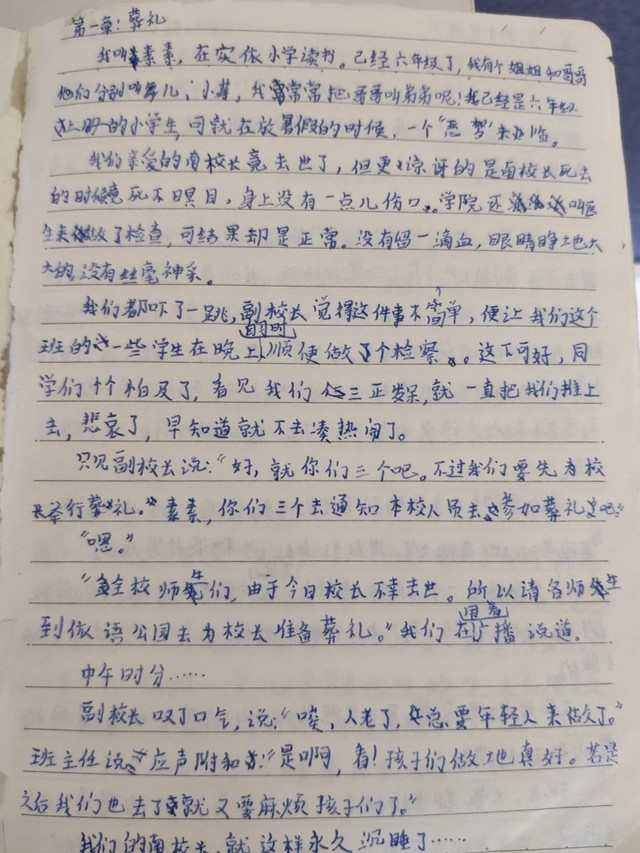 第一章：葬礼
我叫素素，在安依小学读书。已经六年级了，我有个姐姐和哥哥
他们分别叫舞儿，小莽，我常常把哥哥叫弟弟呢！我已经是六年级
上册的小学生，可就在放暑假的时候，一个“恶梦”来临。
我的亲爱的南校长竟去世了，但更凉讶的是南校长死去
的时候竟死不瞑目，身上没有一点儿伤口。学院还叫医
生来做了检查，可结果却是正常。没有留一滴血，眼睛睁地大
大的没有丝毫神采。
我们都吓了一跳，副校长觉得这件事不简单，便让我们这个
班的一些学生在晚上自习时顺便做了个检察。这下可好，同
学们十个怕及了，看见我们仨正发呆，就一直把我们推上
去，悲哀了，早知道就不去凑热闹了。
只见副校长说：“好，就你们三个吧。不过我们要先为校
长举行葬礼。”素素，你们三个去通知本校人员去参加葬礼吧。”
“嗯。”
“全校师生们，由于今日校长不幸去世。所以请各师生
到依语公园去为校长准备葬礼。”我们在广播道着说道。
中午时分……
副校长叹了口气，说：“唉，人老了，总要年轻人来做了。”
班主任说应声附和：“是啊，看！孩子们做地真好。若是
之后我们也去了就又要麻烦孩子们了。”
我们的南校长，就这样永久沉睡了……